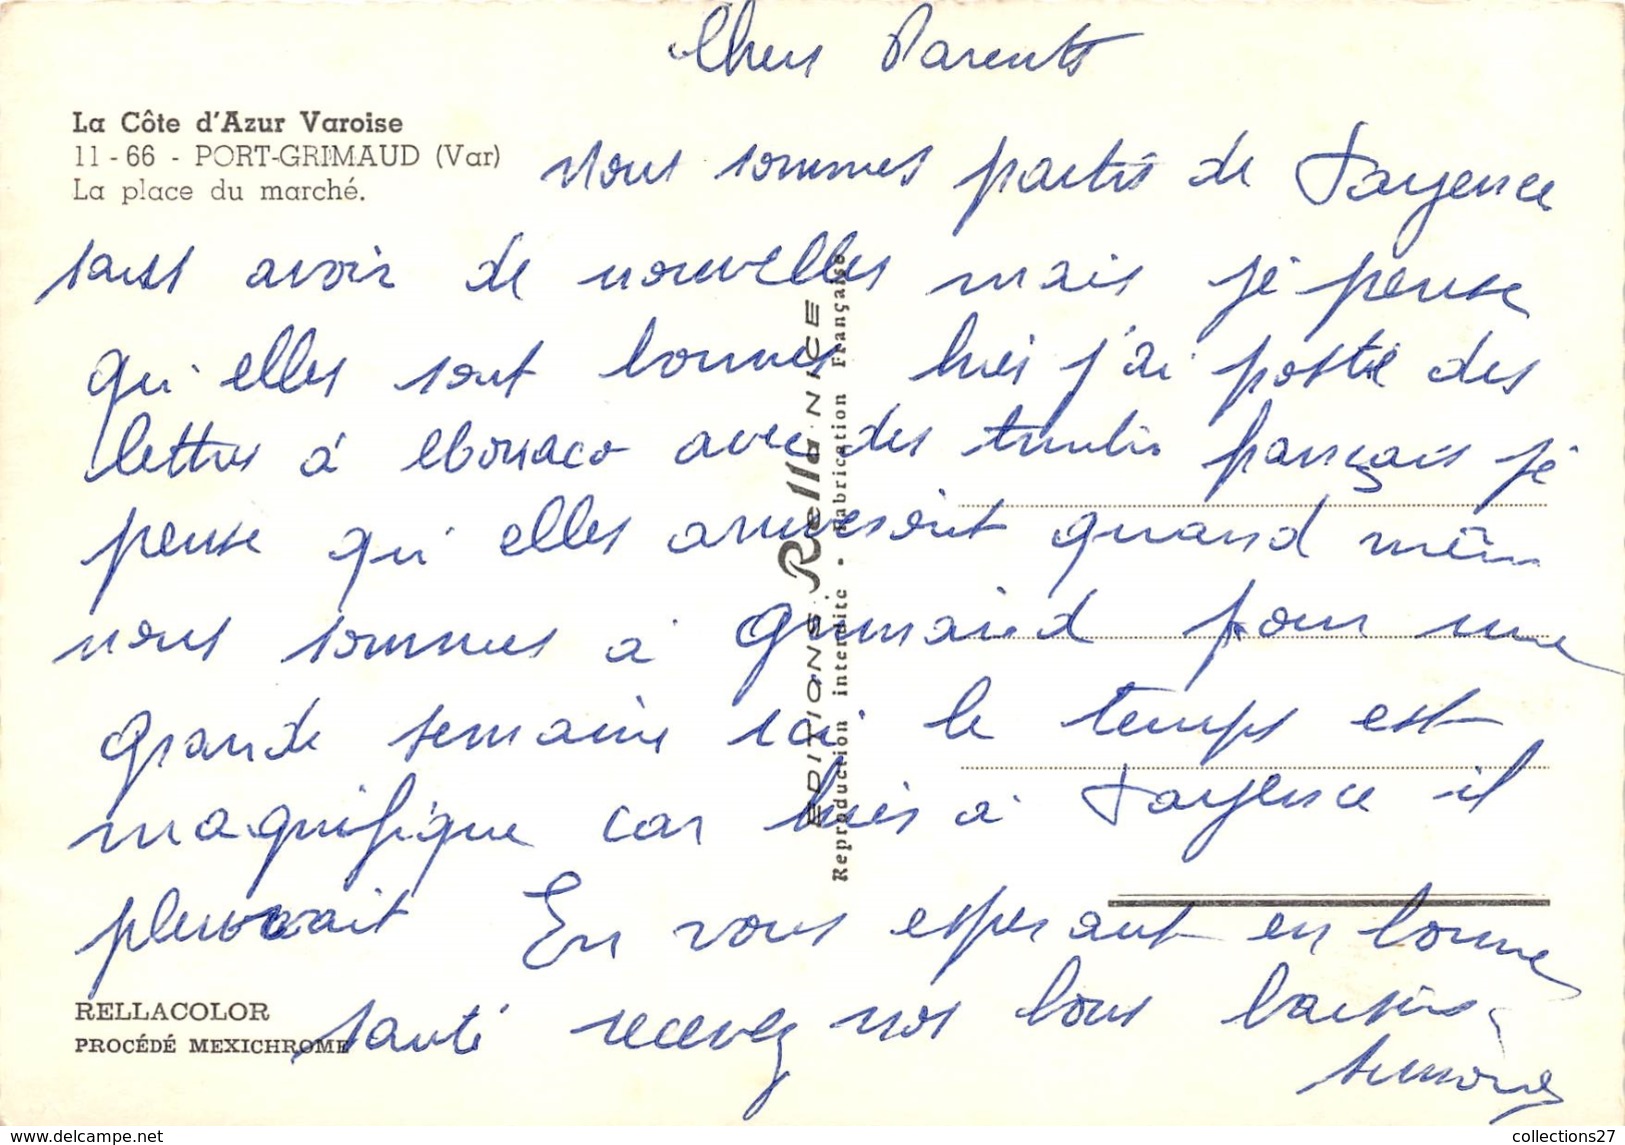 Chers Parents
La Côte d'Azur Varoise
11 - 66 - PORT-GRIMAUD (Var)
La place du marché.
Nous sommes partis de Fayence
sans avoir de nouvelles mais je pense
qu'elles sont bonnes hier j'ai posté des
lettres à Monaco avec des timbres français je
pense qu'elles arriveront quand même
nous sommes à Grimaud pour une
grande semaine ici le temps est
magnifique car hier à Fayence il
pleuvait En vous esperant en bonne
santé recevez nos bons baisers
Simone
EDITIONS Rella NICE
Reproduction interdite • Fabrication Française
RELLACOLOR
PROCÉDÉ MEXICHROME
collections27